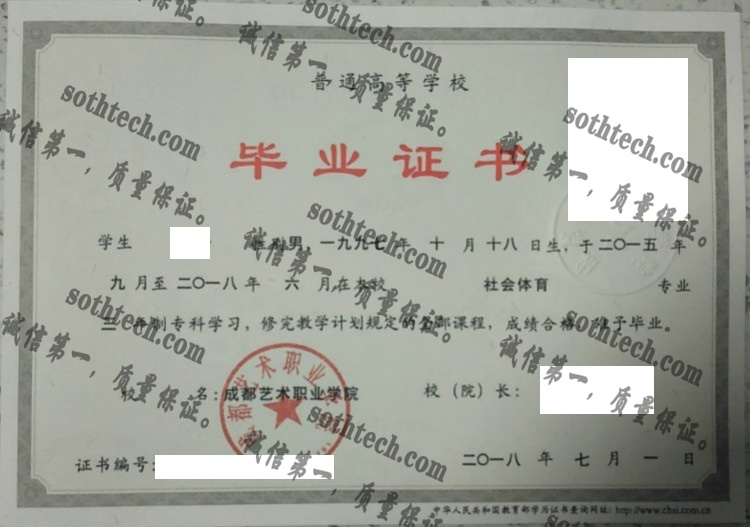 普通高等学校
毕业证书
学生 性别男,一九九七年 十 月十八日生,于二〇一五 年
九 月至 二〇一八 年 六 月在本校 社会体育 专业
三 年制专科学习,修完教学计划规定的全部课程,成绩合格,准予毕业。
校 名:成都艺术职业学院 校(院)长:
证书编号: 二〇一八 年 七 月 一 日
中华人民共和国教育部学历证书查询网址: http://www.chsi.com.cn
sothtech.com
诚信第一,质量保证。
sothtech.com
诚信第一,质量保证。
sothtech.com
诚信第一,质量保证。
sothtech.com
诚信第一,质量保证。
sothtech.com
诚信第一,质量保证。
sothtech.com
诚信第一,质量保证。
sothtech.com
诚信第一,质量保证。
sothtech.com
诚信第一,质量保证。